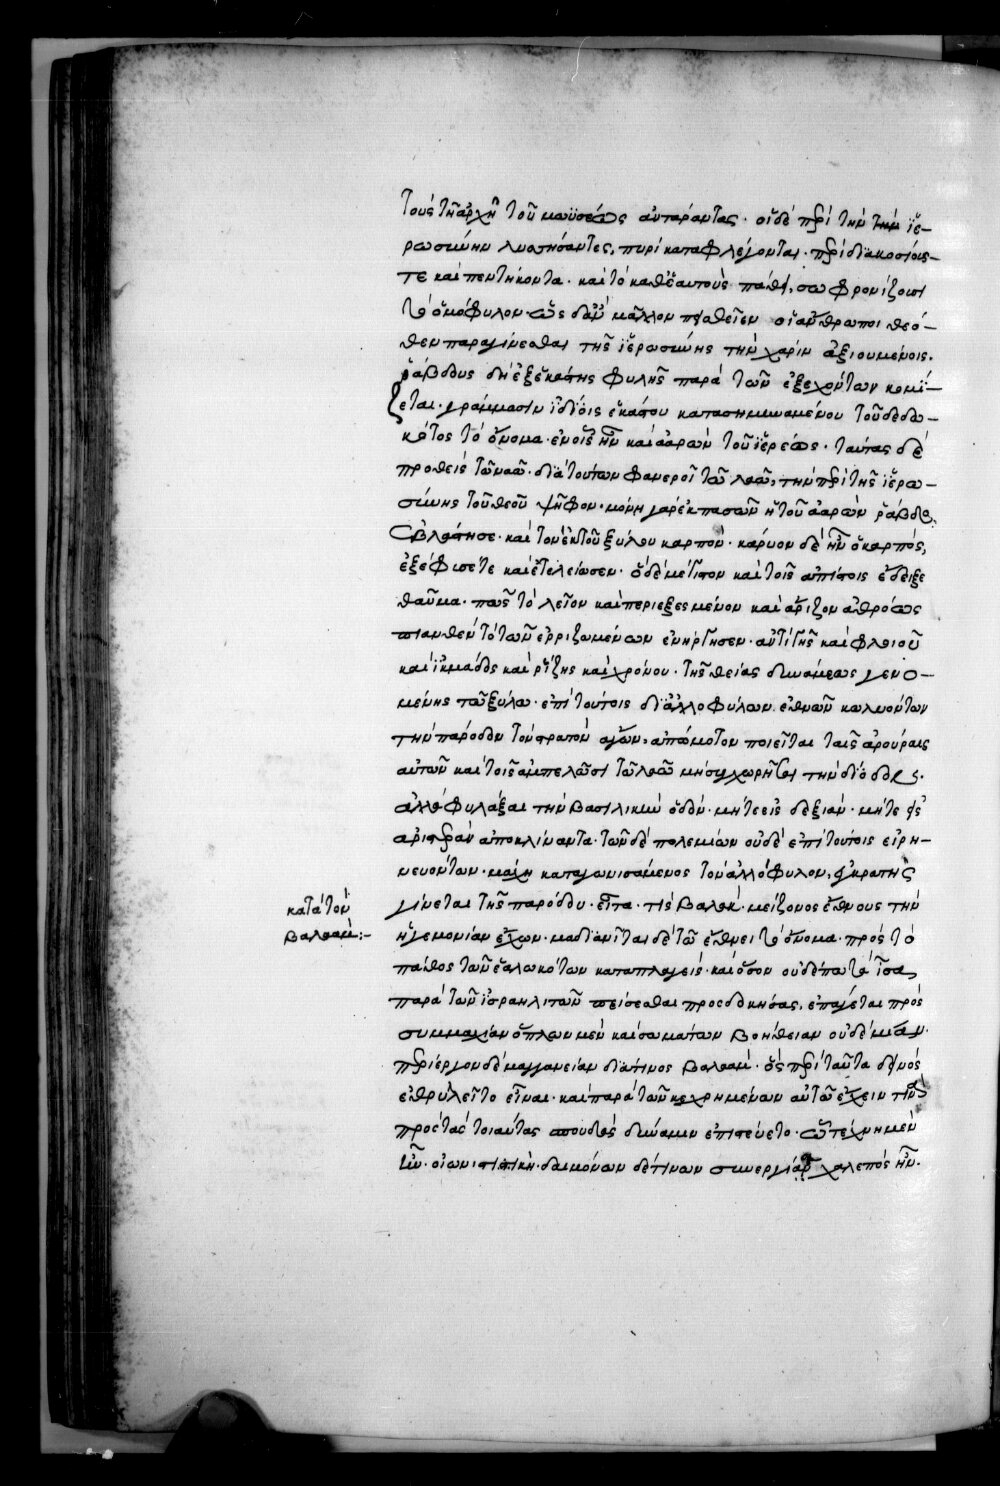 τοὺς τῇ ἀρχῇ τοῦ μωϋσέως ἀντάραντας· οἱ δὲ περὶ τὴν τὴν ἱε-
ρωσύνην λυττήσαντες, πυρὶ καταφλέγονται· περὶ διακοσίους
τε καὶ πεντήκοντα· καὶ τὸ καθ' ἑαυτοὺς πάθει, σωφρονίζουσι
τὸ ὁμόφυλον· ὡς δ' ἂν μᾶλλον πεισθεῖεν οἱ ἄνθρωποι θεό-
θεν παραγίνεσθαι τῆς ἱερωσύνης τὴν χάριν ἀξιουμένοις.
ῥάβδους δὴ ἐξ ἑκάστης φυλῆς παρὰ τῶν ἐξεχόντων κομί-
ζεται· γράμμασιν ἰδίοις ἑκάστου κατασημηναμένου τοῦ δεδω-
κότος τὸ ὄνομα· ἐν οἷς ἦν καὶ ἀαρὼν τοῦ ἱερέως· ταύτας δὲ
προθεὶς τῷ ναῷ· διὰ τούτων φανεροῖ τῷ λαῷ, τὴν περὶ τῆς ἱερω-
σύνης τοῦ θεοῦ ψῆφον· μόνη γὰρ ἐκ πασῶν ἡ τοῦ ἀαρὼν ῥάβδος
ἐβλάστησε· καὶ τὸν ἐκ τοῦ ξύλου καρπὸν· κάρυον δὲ ἦν ὁ καρπός,
ἐξέφυσέ τε καὶ ἐτελείωσεν· ὃ δὲ μέγιστον καὶ τοῖς ἀπίστοις ἔδειξε
θαῦμα· πῶς τὸ λεῖον καὶ περιεξεσμένον καὶ ἄριζον ἀθρόως
πιανθὲν τὸ τῶν ἐρριζωμένων ἐνήργησεν· ἀντὶ γῆς καὶ φλοιοῦ
καὶ ἰκμάδος καὶ ῥίζης καὶ χρόνου· τῆς θείας δυνάμεως γενο-
μένης τῷ ξύλῳ· ἐπὶ τούτοις δι' ἀλλοφύλων ἐθνῶν κωλυόντων
τὴν πάροδον τὸν στρατὸν ἄγων, ἀπώμοτον ποιεῖται ταῖς ἀρούραις
αὐτῶν καὶ τοῖς ἀμπελῶσι τῷ λαῷ μὴ συγχωρῆσαι τὴν δίοδον·
ἀλλὰ φυλάξαι τὴν βασιλικὴν ὁδὸν· μήτε εἰς δεξιὰν· μήτε εἰς
ἀριστερὰν ἀποκλίναντα· τῶν δὲ πολεμίων οὐδὲ ἐπὶ τούτοις εἰρη-
νευόντων· μάχῃ καταγωνισάμενος τὸν ἀλλόφυλον, ἐγκρατὴς
γίνεται τῆς παρόδου· εἶτα· τίς βαλὰκ· μείζονος ἔθνους τὴν
ἡγεμονίαν ἔχων· μαδιανῖται δὲ τῷ ἔθνει τὸ ὄνομα· πρὸς τὸ
πάθος τῶν ἑαλωκότων καταπλαγεὶς· καὶ ὅσον οὐδέπω τὰ ἴσα
παρὰ τῶν ἰσραηλιτῶν πείσεσθαι προσδοκήσας, ἐπάγεται πρὸς
συμμαχίαν ὅπλων μὲν καὶ σωμάτων βοήθειαν οὐδὲ μίαν·
περίεργον δὲ μαγγανείαν διά τινος βαλαὰμ· ὃς περὶ ταῦτα δεινὸς
ἐθρυλεῖτο εἶναι· καὶ παρὰ τῶν κεχρημένων αὐτῷ ἔχειν τινὰ
πρὸς τὰς τοιαύτας σπουδὰς δύναμιν ἐπιστεύετο· ᾧ τέχνη μὲν
ἦν· οἰωνιστικὴ· δαιμόνων δέ τινων συνεργίᾳ χαλεπὸς ἦν.
κατὰ τὸν
βαλαάμ:-